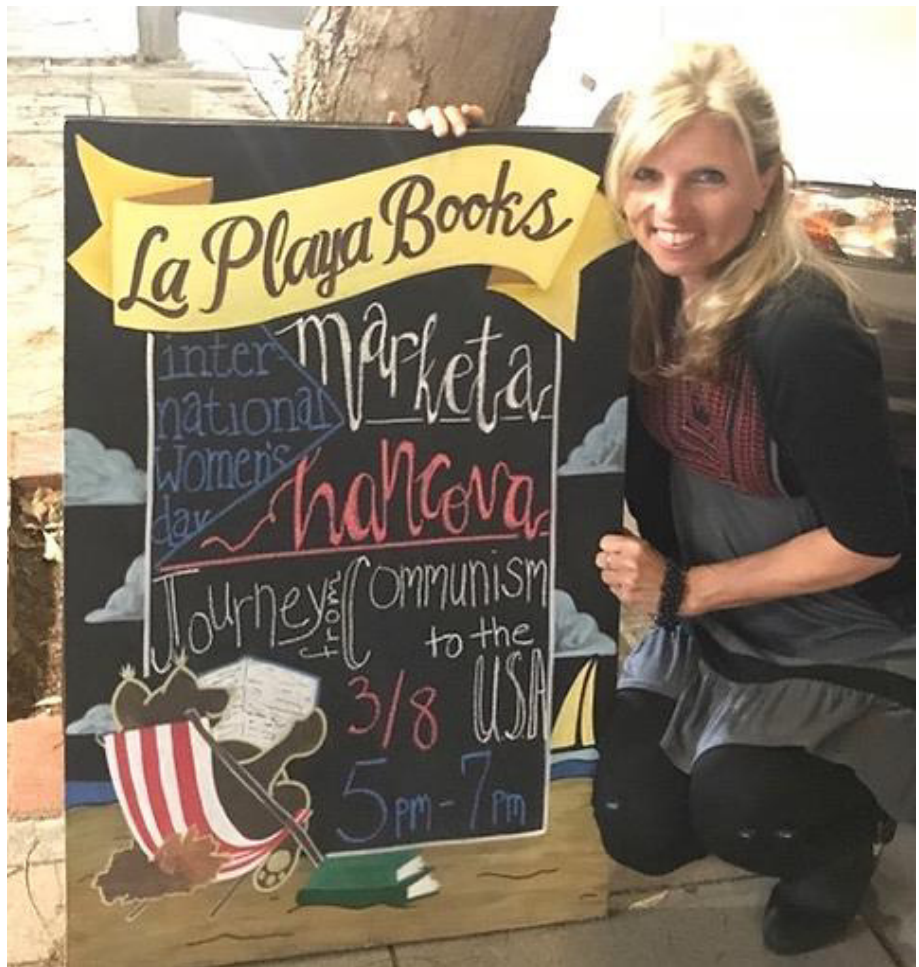 La Playa Books
inter
national
women's
day
Marketa
hancova
Journey from Communism
to the
USA
3/8
5pm-7pm